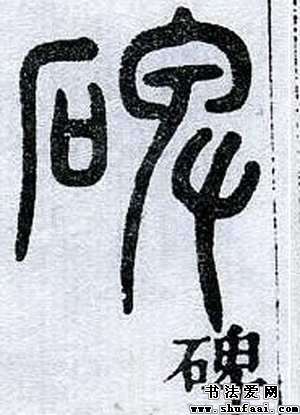 碑
碑
书法爱网
www.shufaai.com